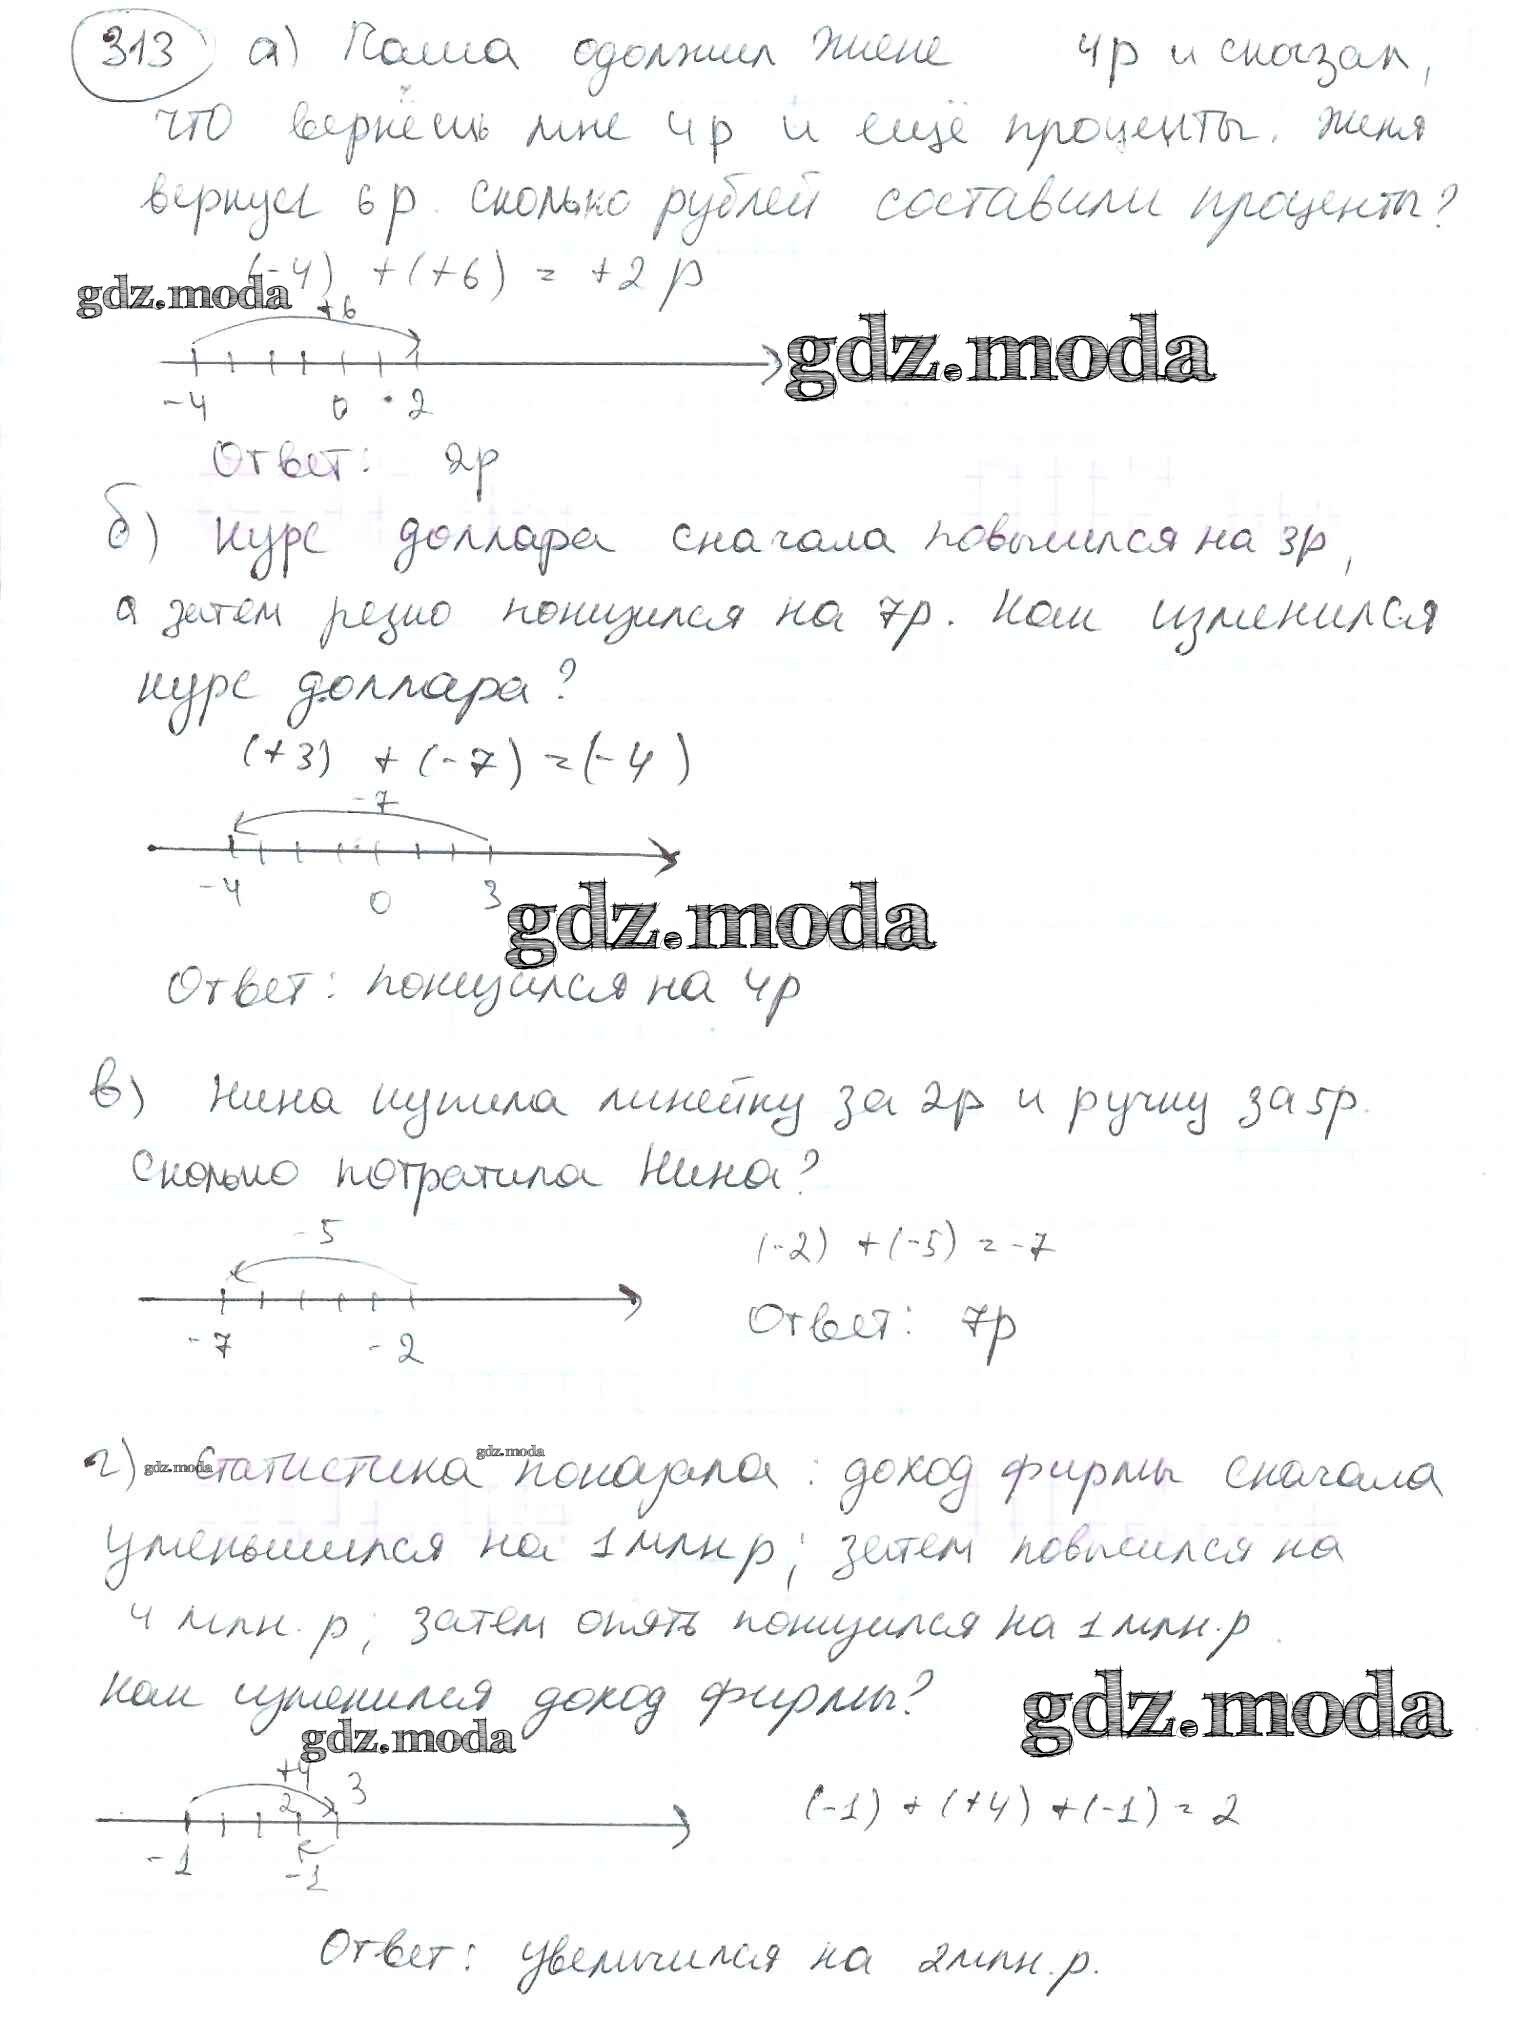 313 а) Паша одолжил Жене 4р и сказал,
что вернёшь мне 4р и ещё проценты. Женя
вернул 6р. Сколько рублей составили проценты?
(-4) + (+6) = +2 р
gdz.moda
+6
gdz.moda
-4 0 2
Ответ: 2р
б) Курс доллара сначала повысился на 3р,
а затем резко понизился на 7р. Как изменился
курс доллара?
(+3) + (-7) = (-4)
-7
-4 0 3
gdz.moda
Ответ: понизился на 4р
в) Нина купила линейку за 2р и ручку за 5р.
Сколько потратила Нина?
-5
(-2) + (-5) = -7
-7 -2
Ответ: 7р
gdz.moda
г) gdz.moda Статистика показала: доход фирмы сначала
уменьшился на 1 млн р; затем повысился на
4 млн. р; затем опять понизился на 1 млн. р.
Как изменился доход фирмы?
gdz.moda
gdz.moda
+4
2 3
(-1) + (+4) + (-1) = 2
-1 -1
Ответ: увеличился на 2 млн. р.